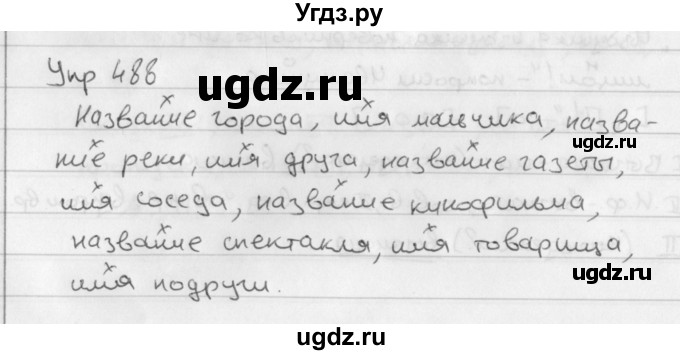 Угдз.ру
Упр 488
ugdz.ru
Название города, имя мальчика, назва-
ние реки, имя друга, название газеты,
имя соседа, название кинофильма,
ugdz.ru
название спектакля, имя товарища,
ugdz.ru
имя подруги.
ugdz.ru